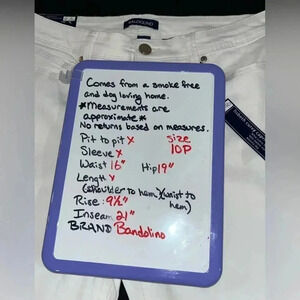 BANDOLINO
Comes from a smoke free
and dog loving home.
*Measurements are
approximate*
No returns based on measures.
Pit to pit X
Size
10P
Sleeve X
Waist 16" Hip 19"
Length X
(shoulder to hem)(waist to
hem)
Rise: 9½"
Inseam 21"
BRAND Bandolino